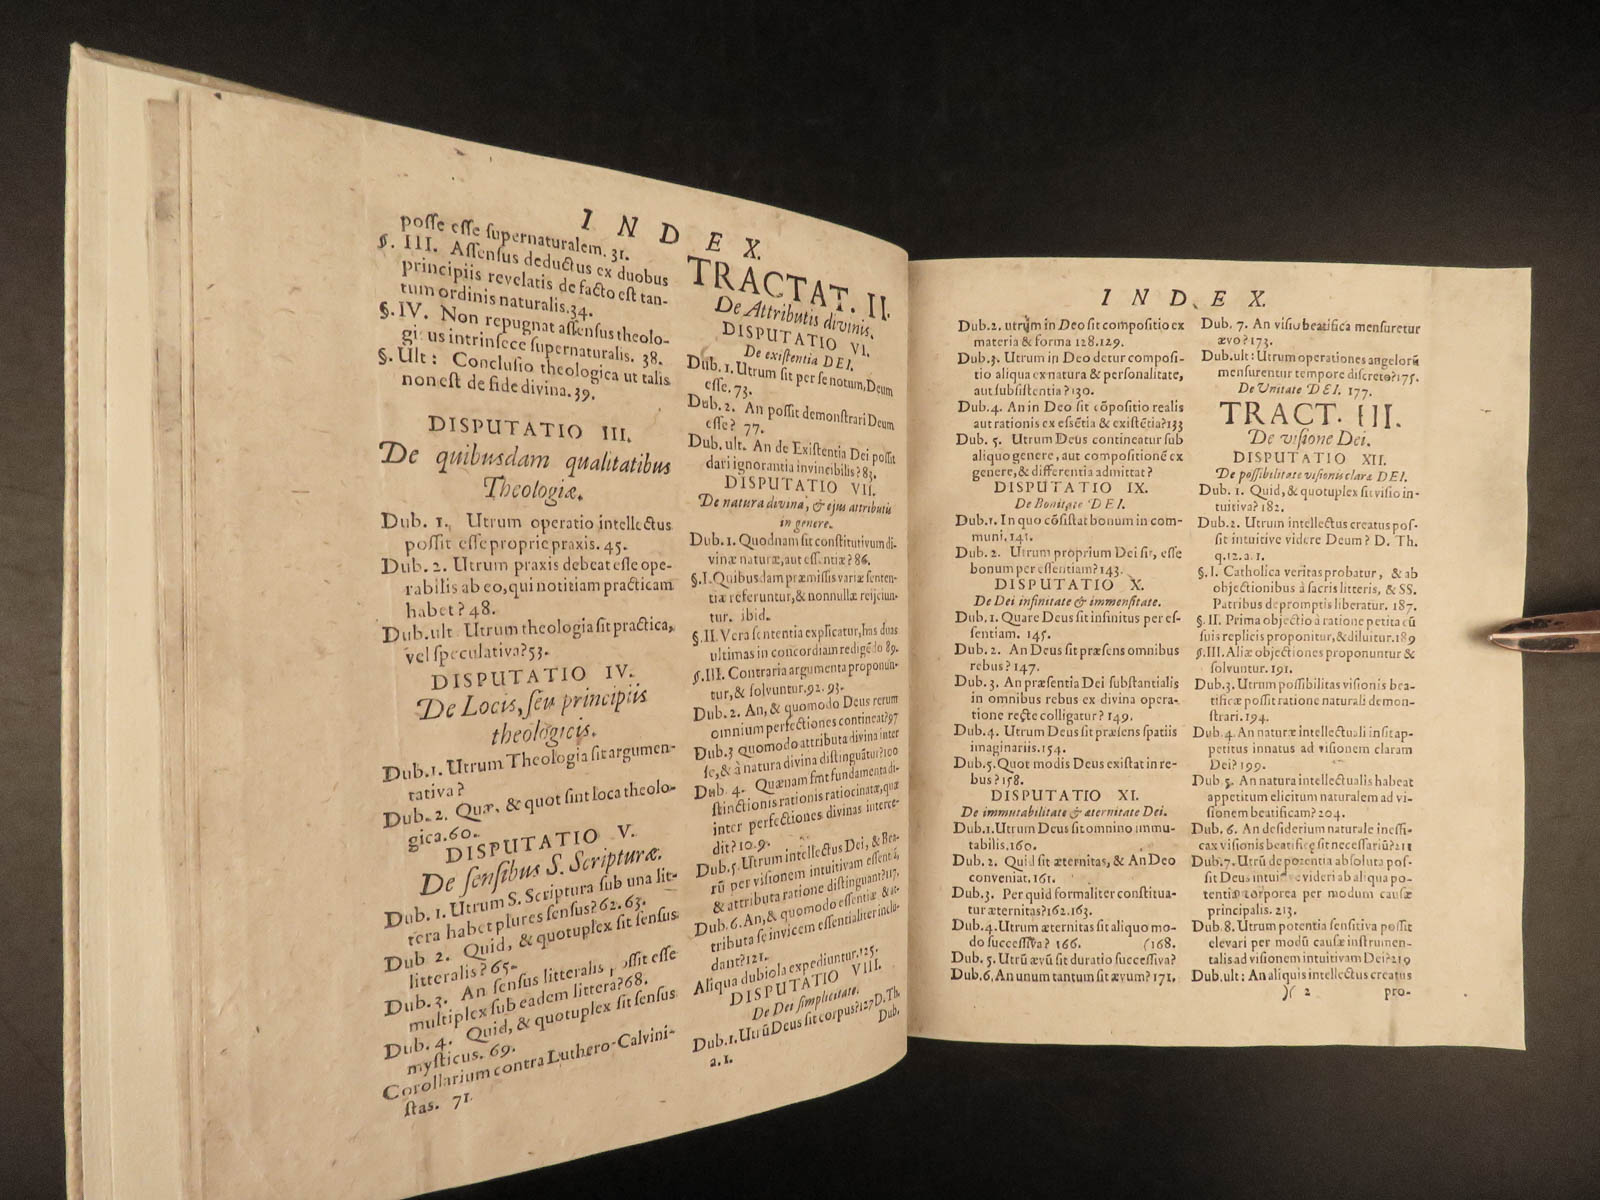 INDEX.
posse esse supernaturalem. 31.
§. III. Assensus deductus ex duobus
principiis revelatis de facto est tan-
tum ordinis naturalis. 34.
§. IV. Non repugnat assensus theolo-
gicus intrinsece supernaturalis. 38.
§. Ult: Conclusio theologica ut talis
non est de fide divina. 39.
DISPUTATIO III.
De quibusdam qualitatibus
Theologiæ.
Dub. 1. Utrum operatio intellectus
possit esse proprie praxis. 45.
Dub. 2. Utrum praxis debeat esse ope-
rabilis ab eo, qui notitiam practicam
habet? 48.
Dub. ult. Utrum theologia sit practica,
vel speculativa? 53.
DISPUTATIO IV.
De Locis, seu principiis
theologicis.
Dub. 1. Utrum Theologia sit argumen-
tativa?
Dub. 2. Quæ, & quot sint loca theolo-
gica. 60.
DISPUTATIO V.
De sensibus S. Scripturæ.
Dub. 1. Utrum S. Scriptura sub una lit-
tera habet plures sensus? 62. 63.
Dub 2. Quid, & quotuplex sit sensus
litteralis? 65.
Dub. 3. An sensus litteralis possit esse
multiplex sub eadem littera? 68.
Dub. 4. Quid, & quotuplex sit sensus
mysticus. 69.
Corollarium contra Luthero-Calvini-
stas. 71.
TRACTAT. II.
De Attributis divinis.
DISPUTATIO VI.
De existentia DEI.
Dub. 1. Utrum sit per se notum, Deum
esse. 73.
Dub. 2. An possit demonstrari Deum
esse? 77.
Dub. ult. An de Existentia Dei possit
dari ignorantia invincibilis? 83.
DISPUTATIO VII.
De natura divina, & ejus attributis
in genere.
Dub. 1. Quodnam sit constitutivum di-
vinæ naturæ, aut essentiæ? 86.
§. I. Quibusdam præmissis variæ senten-
tiæ referuntur, & nonnullæ rejiciun-
tur. ibid.
§. II. Vera sententia explicatur, has duas
ultimas in concordiam redigẽdo 89.
§. III. Contraria argumenta proponun-
tur, & solvuntur. 92. 93.
Dub. 2. An, & quomodo Deus rerum
omnium perfectiones contineat? 97
Dub. 3 Quomodo attributa divina inter
se, & à natura divina distinguãtur? 100
Dub. 4. Quænam sint fundamenta di-
stinctionis rationis ratiocinatæ, quæ
inter perfectiones divinas interce-
dit? 10.9.
Dub. 5. Utrum intellectus Dei, & Bea-
rũ per visionem intuitivam essentiã,
& attributa ratione distinguant? 117.
Dub. 6. An, & quomodo essentiæ & at-
tributa se invicem essentialiter inclu-
dant? 121.
Aliqua dubiola expediuntur. 125.
DISPUTATIO VIII.
De Dei simplicitate.
Dub. 1. Utrũ Deus sit corpus? 127 D. Th.
a. 1.
Dub.
INDEX.
Dub. 2. utrum in Deo sit compositio ex
materia & forma 128. 129.
Dub. 3. Utrum in Deo detur composi-
tio aliqua ex natura & personalitate,
aut subsistentia? 130.
Dub. 4. An in Deo sit cõpositio realis
aut rationis ex essẽtia & existẽtia? 133
Dub. 5. Utrum Deus contineatur sub
aliquo genere, aut compositionẽ ex
genere, & differentia admittat?
DISPUTATIO IX.
De Bonitate DEI.
Dub. 1. In quo cõsistat bonum in com-
muni. 141.
Dub. 2. Utrum proprium Dei sit, esse
bonum per essentiam? 143.
DISPUTATIO X.
De Dei infinitate & immensitate.
Dub. 1. Quare Deus sit infinitus per es-
sentiam. 145.
Dub. 2. An Deus sit præsens omnibus
rebus? 147.
Dub. 3. An præsentia Dei substantialis
in omnibus rebus ex divina opera-
tione recte colligatur? 149.
Dub. 4. Utrum Deus sit præsens spatiis
imaginariis. 154.
Dub. 5. Quot modis Deus existat in re-
bus? 158.
DISPUTATIO XI.
De immutabilitate & æternitate Dei.
Dub. 1. Utrum Deus sit omnino immu-
tabilis. 160.
Dub. 2. Quid sit æternitas, & An Deo
conveniat. 161.
Dub. 3. Per quid formaliter constitua-
tur æternitas? 162. 163.
Dub. 4. Utrum æternitas sit aliquo mo-
do successiva? 166. (168.
Dub. 5. Utrũ ævũ sit duratio successiva?
Dub. 6. An unum tantum sit ævum? 171.
Dub. 7. An visio beatifica mensuretur
ævo? 173.
Dub. ult: Utrum operationes angelorũ
mensurentur tempore discreto? 175.
De Unitate DEI. 177.
TRACT. III.
De visione Dei.
DISPUTATIO XII.
De possibilitate visionis claræ DEI.
Dub. 1. Quid, & quotuplex sit visio in-
tuitiva? 182.
Dub. 2. Utrum intellectus creatus pos-
sit intuitive videre Deum? D. Th.
q. 12. a. 1.
§. I. Catholica veritas probatur, & ab
objectionibus à sacris litteris, & SS.
Patribus depromptis liberatur. 187.
§. II. Prima objectio à ratione petita cũ
suis replicis proponitur, & diluitur. 189
§. III. Aliæ objectiones proponuntur &
solvuntur. 191.
Dub. 3. Utrum possibilitas visionis bea-
tificæ possit ratione naturali demon-
strari. 194.
Dub. 4. An naturæ intellectuali insit ap-
petitus innatus ad visionem claram
Dei? 199.
Dub. 5. An natura intellectualis habeat
appetitum elicitum naturalem ad vi-
sionem beatificam? 204.
Dub. 6. An desiderium naturale ineffi-
cax visionis beatificę sit necessariũ? 211
Dub. 7. Utrũ de potentia absoluta pos-
sit Deus intuitive videri ab aliqua po-
tentia corporea per modum causæ
principalis. 213.
Dub. 8. Utrum potentia sensitiva possit
elevari per modũ causæ instrumen-
talis ad visionem intuitivam Dei? 219
Dub. ult: An aliquis intellectus creatus
)( 2 pro-